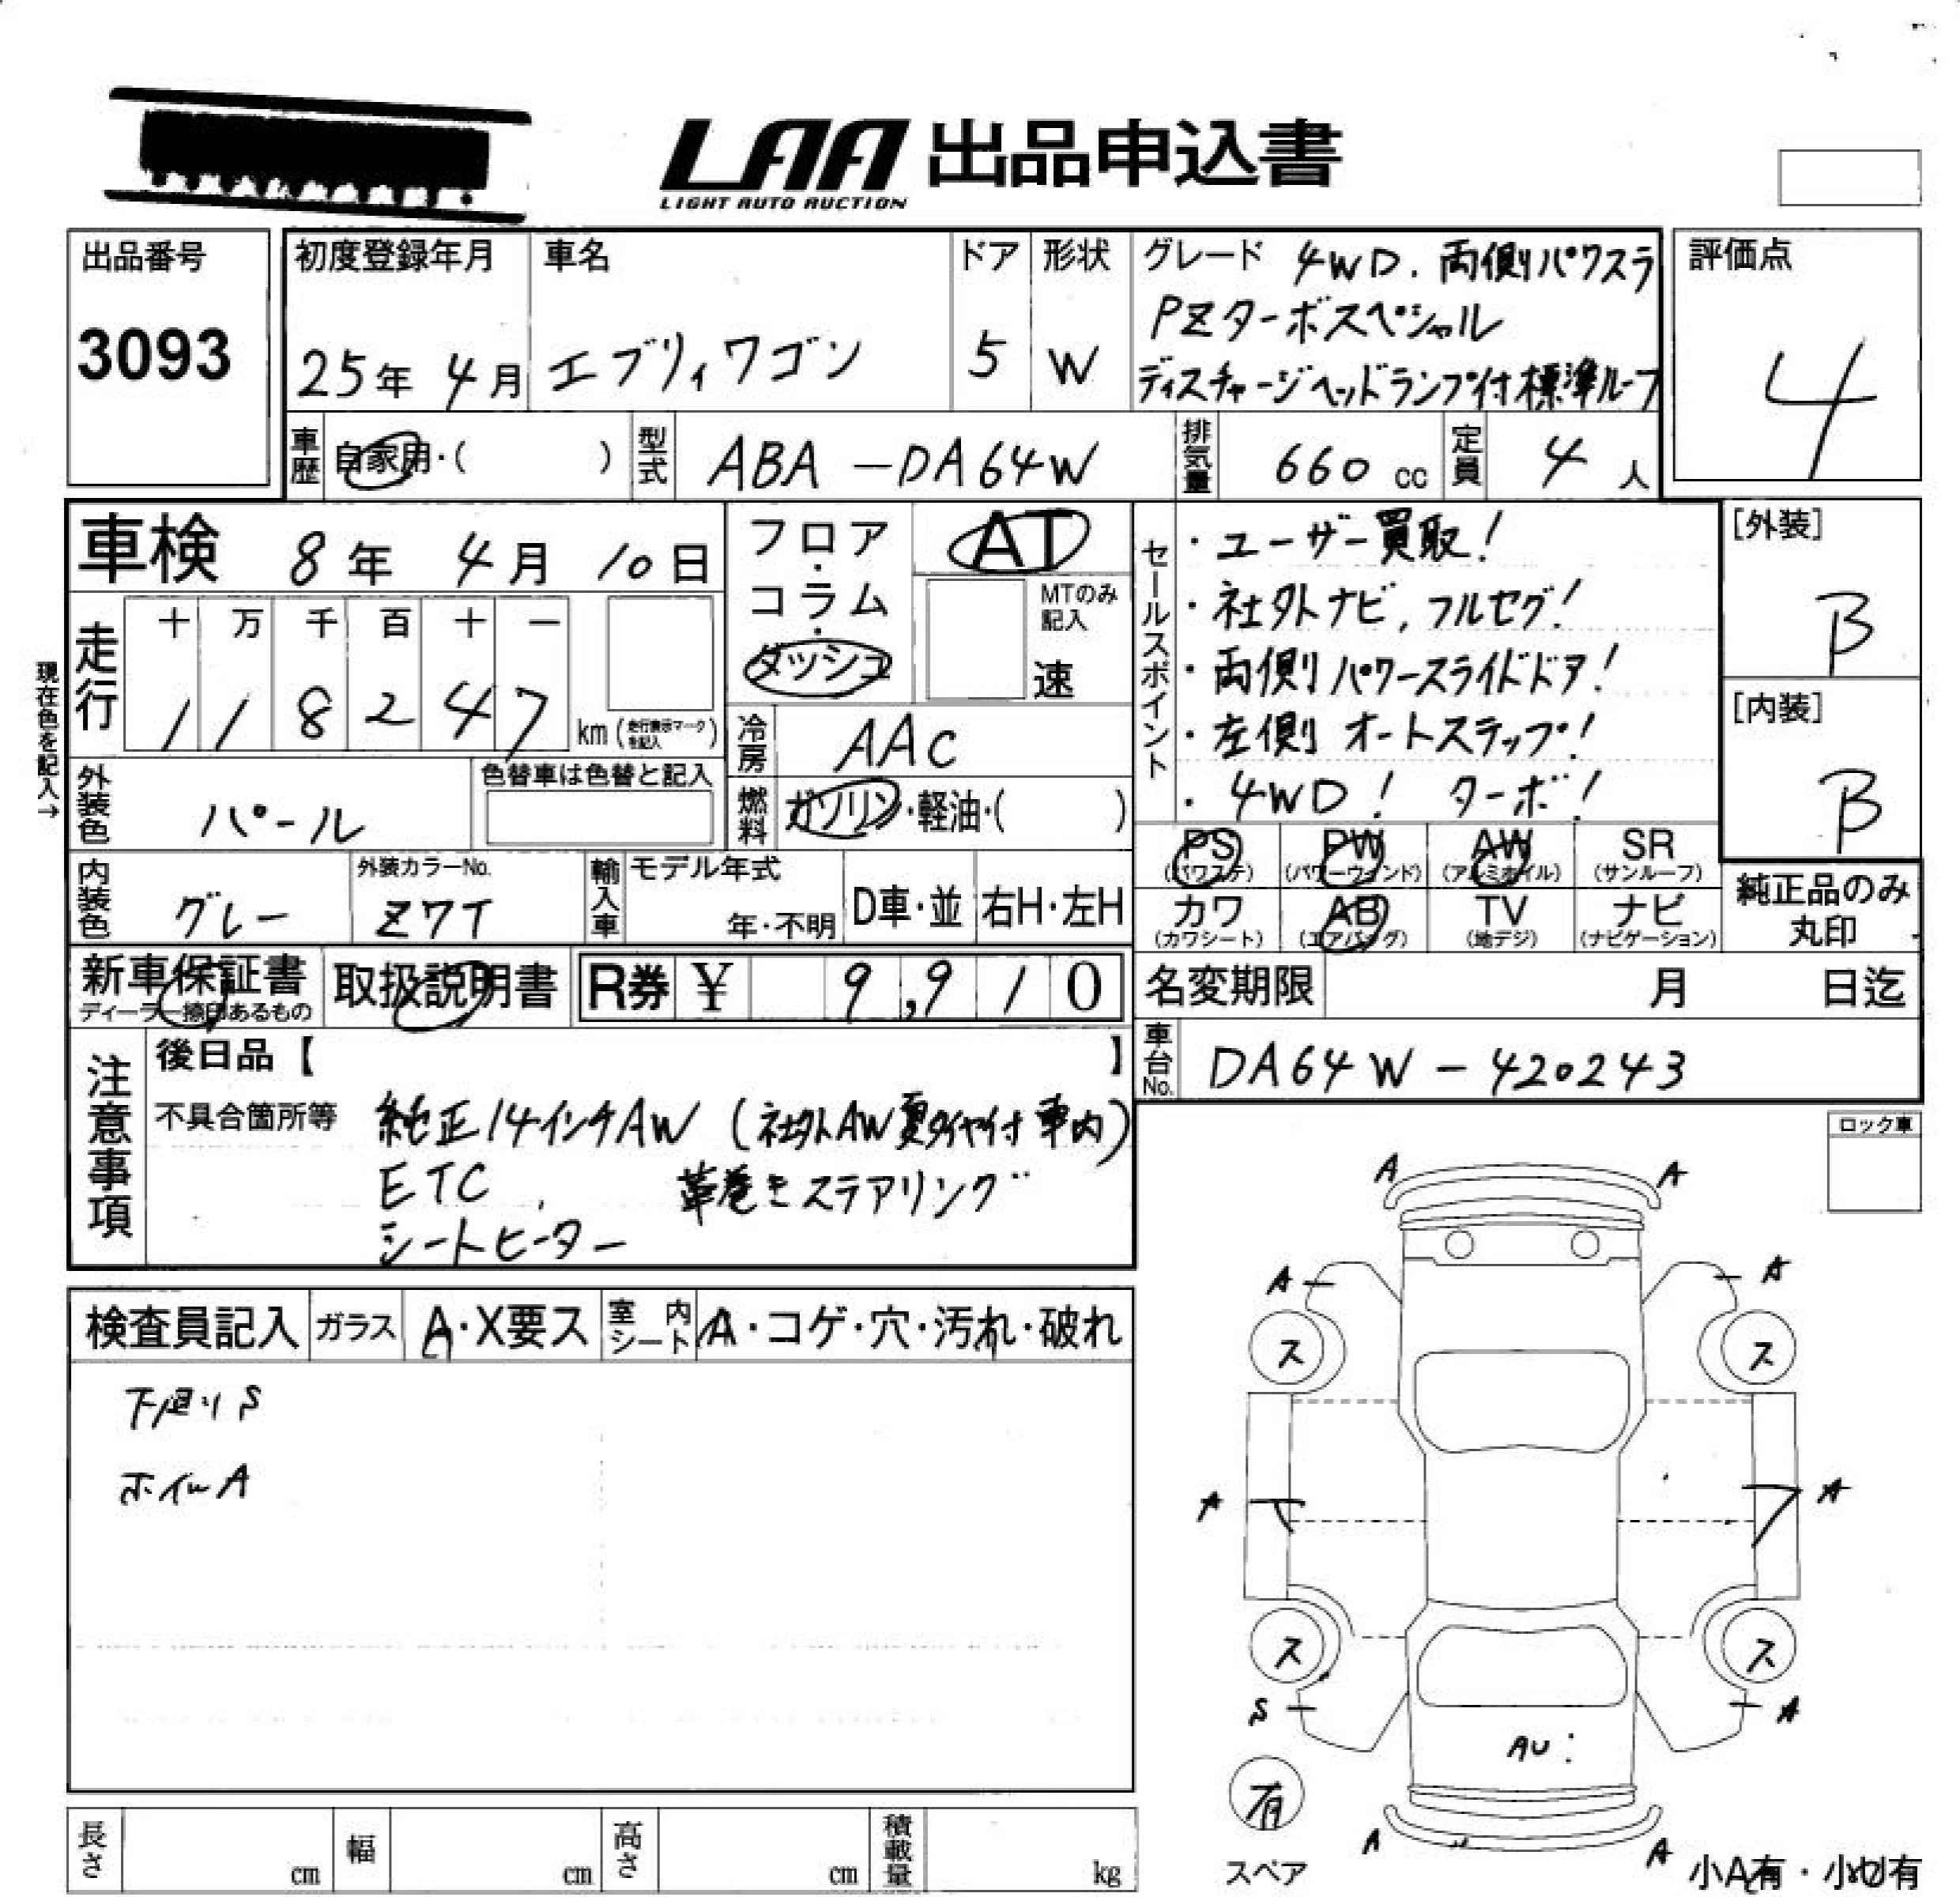 LAA 出品申込書
LIGHT AUTO AUCTION
出品番号
3093
初度登録年月
25年 4月
車名
エブリィワゴン
ドア
5
形状
W
グレード 4WD. 両側パワスラ
PZターボスペシャル
ディスチャージヘッドランプ付標準ルーフ
評価点
4
車歴 自家用・( )
型式 ABA-DA64W
排気量 660 cc
定員 4 人
車検 8年 4月 10日
フロア・コラム・ダッシュ
AT
MTのみ記入
速
セールスポイント
・ユーザー買取!
・社外ナビ, フルセグ!
・両側パワースライドドア!
・左側オートステップ!
・4WD! ターボ!
[外装]
B
[内装]
B
現在色を記入→
走行
十 万 千 百 十 一
1 1 8 2 4 7 km (走行表示マークを記入)
冷房 AAC
外装色 パール
色替車は色替と記入
燃料 ガソリン・軽油・( )
内装色 グレー
外装カラーNo.
Z7T
輸入車
モデル年式
年・不明
D車・並
右H・左H
PS
(パワステ)
PW
(パワーウィンド)
AW
(アルミホイル)
SR
(サンルーフ)
カワ
(カワシート)
AB
(エアバッグ)
TV
(地デジ)
ナビ
(ナビゲーション)
純正品のみ
丸印
新車保証書
ディーラー捺印あるもの
取扱説明書
R券 ¥ 9,910
名変期限 月 日迄
車台No. DA64W-420243
注意事項
後日品【 】
不具合箇所等 純正14インチAW (社外AW夏タイヤ付 車内)
ETC, 革巻きステアリング
シートヒーター
ロック車
検査員記入
ガラス A・X要ス
室内シート A・コゲ・穴・汚れ・破れ
下廻りS
ホイルA
A A
A A
ス ス
A A
ス ス
S A
AU:
有
スペア
A A
小A有・小U有
長さ cm
幅 cm
高さ cm
積載量 kg